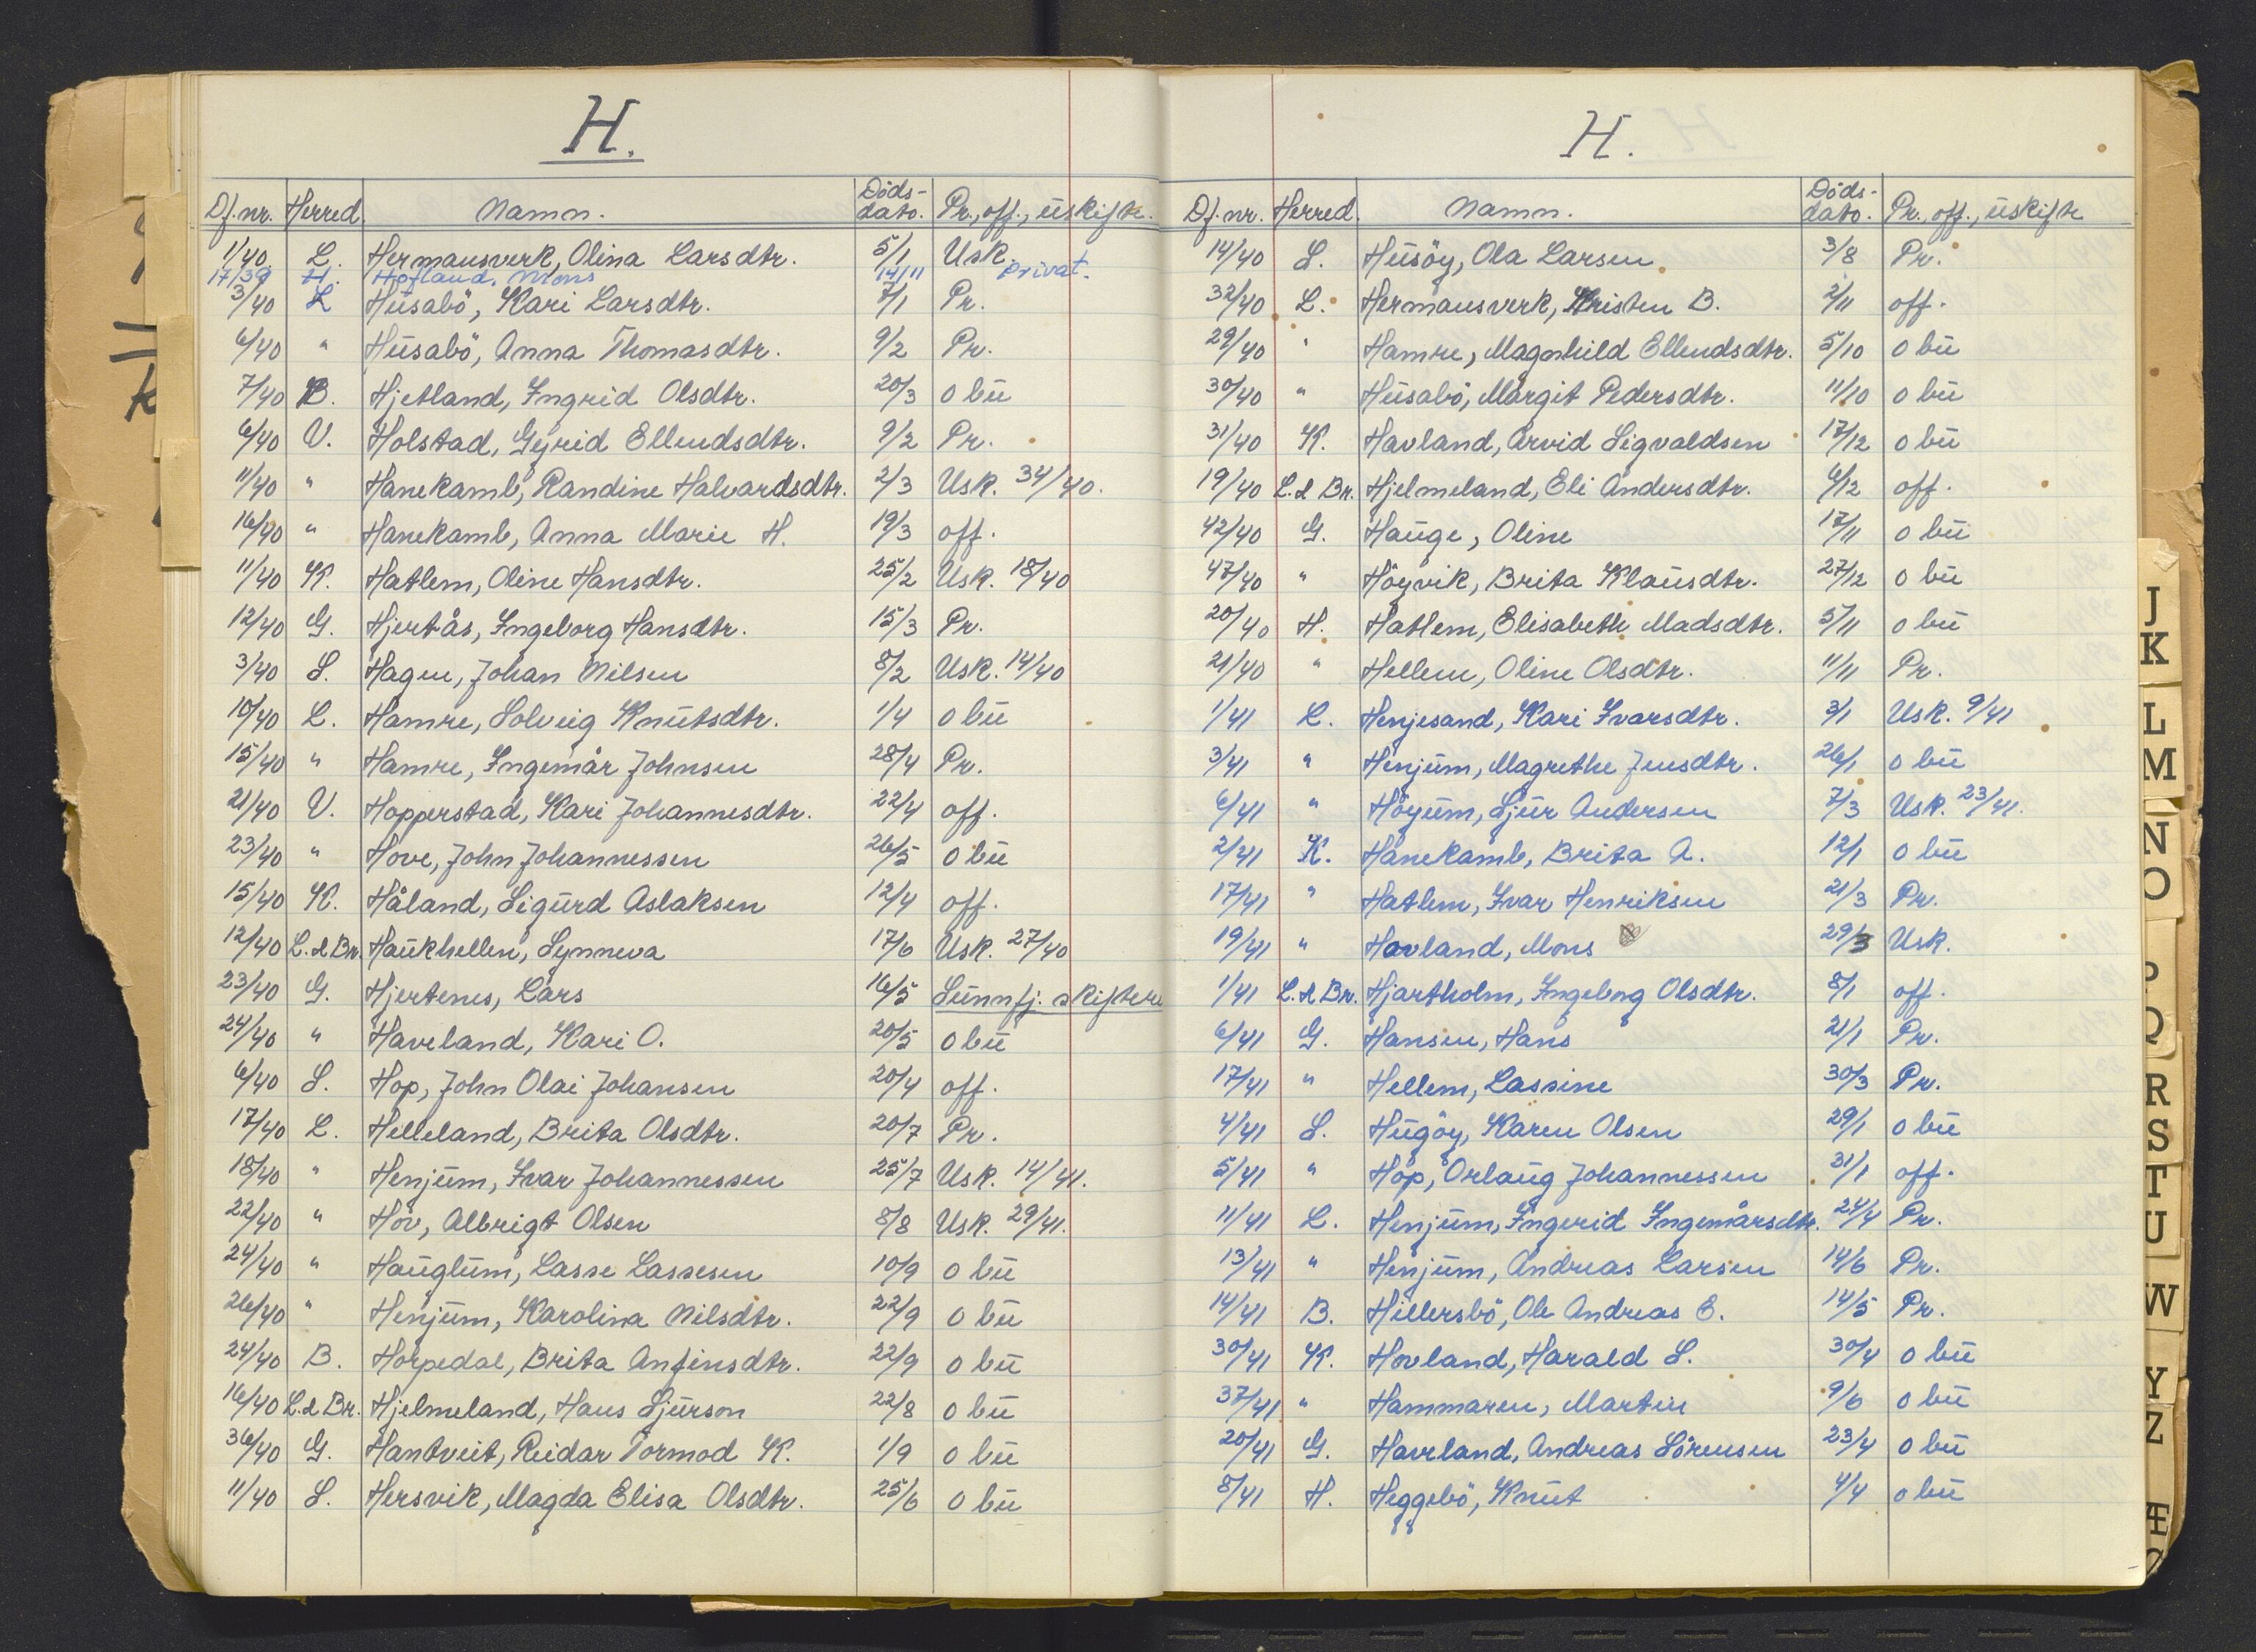 H.
Df.nr. Herred. Namn. Døds-dato. Pr., off., uskifte.
1/40 L. Hermansverk, Olina Larsdtr. 5/1 Usk.
17/39 H. Hofland, Mons 14/11 privat.
3/40 L Husabö, Kari Larsdtr. 7/1 Pr.
6/40 " Husabö, Anna Thomasdtr. 9/2 Pr.
7/40 B. Hjetland, Ingrid Olsdtr. 20/3 o bu
6/40 V. Holstad, Gyrid Ellendsdtr. 9/2 Pr.
11/40 " Hanekamb, Randine Halvardsdtr. 2/3 Usk. 34/40.
16/40 " Hanekamb, Anna Marie H. 19/3 off.
11/40 K. Hatlem, Oline Hansdtr. 25/2 Usk. 18/40
12/40 G. Hjertås, Ingeborg Hansdtr. 15/3 Pr.
3/40 S. Hagen, Johan Nilsen 8/2 Usk. 14/40
10/40 L. Hamre, Solveig Knutsdtr. 1/4 o bu
15/40 " Hamre, Ingemår Johnsen 28/4 Pr.
21/40 V. Hopperstad, Kari Johannesdtr. 22/4 off.
23/40 " Hove, John Johannessen 26/5 o bu
15/40 K. Håland, Sigurd Aslaksen 12/4 off.
12/40 L. & Br. Haukhellen, Synneva 17/6 Usk. 27/40
23/40 G. Hjertenes, Lars 16/5 Sunnfj. skiftere
24/40 " Havrland, Kari O. 20/5 o bu
6/40 S. Hop, John Olai Johansen 20/4 off.
17/40 L. Helleland, Brita Olsdtr. 20/7 Pr.
18/40 " Henjum, Ivar Johannessen 25/7 Usk. 14/41.
22/40 " Hov, Albrigt Olsen 8/8 Usk. 29/41.
24/40 " Hauglum, Lasse Lassesen 10/9 o bu
26/40 " Henjum, Karolina Nilsdtr. 22/9 o bu
24/40 B. Horpedal, Brita Anfinsdtr. 22/9 o bu
16/40 L. & Br. Hjelmeland, Hans Sjurson 22/8 o bu
36/40 G. Hantveit, Reidar Tormod K. 1/9 o bu
11/40 S. Hersvik, Magda Elisa Olsdtr. 25/6 o bu
H.
Df.nr. Herred. Namn. Døds-dato. Pr., off., uskifte
14/40 S. Husöy, Ola Larsen 3/8 Pr.
32/40 L. Hermansverk, Kristen B. 2/11 off.
29/40 " Hamre, Magnhild Ellendsdtr. 5/10 o bu
30/40 " Husabö, Margit Pedersdtr. 11/10 o bu
31/40 K. Havland, Arvid Sigvaldsen 17/12 o bu
19/40 L. & Br. Hjelmeland, Eli Andersdtr. 6/12 off.
42/40 G. Hauge, Oline 17/11 o bu
47/40 " Höyvik, Brita Klausdtr. 27/12 o bu
20/40 H. Hatlem, Elisabeth Madsdtr. 5/11 o bu
21/40 " Hellem, Oline Olsdtr. 11/11 Pr.
1/41 L. Henjesand, Kari Ivarsdtr. 3/1 Usk. 9/41
3/41 " Henjum, Magrethe Jensdtr. 26/1 o bu
6/41 " Höyum, Sjur Andersen 7/3 Usk. 23/41.
2/41 K. Hanekamb, Brita A. 12/1 o bu
17/41 " Hatlem, Ivar Henriksen 21/3 Pr.
19/41 " Hovland, Mons 29/3 Usk.
1/41 L. & Br. Hjartholm, Ingeborg Olsdtr. 8/1 off.
6/41 G. Hansen, Hans 21/1 Pr.
17/41 " Hellem, Lassine 30/3 Pr.
4/41 S. Hugöy, Karen Olsen 29/1 o bu
5/41 " Hop, Orlaug Johannessen 31/1 off.
11/41 L. Henjum, Ingerid Ingemårsdtr. 24/4 Pr.
13/41 " Henjum, Andreas Larsen 14/6 Pr.
14/41 B. Hillersbö, Ole Andreas E. 14/5 Pr.
30/41 K. Hovland, Harald S. 30/4 o bu
37/41 " Hammaren, Martin 9/6 o bu
20/41 G. Havrland, Andreas Sörensen 23/4 o bu
8/41 H. Heggebö, Knut 4/4 o bu
J
K
L
M
N
O
Q
R
S
T
U
W
Y
Z
Æ